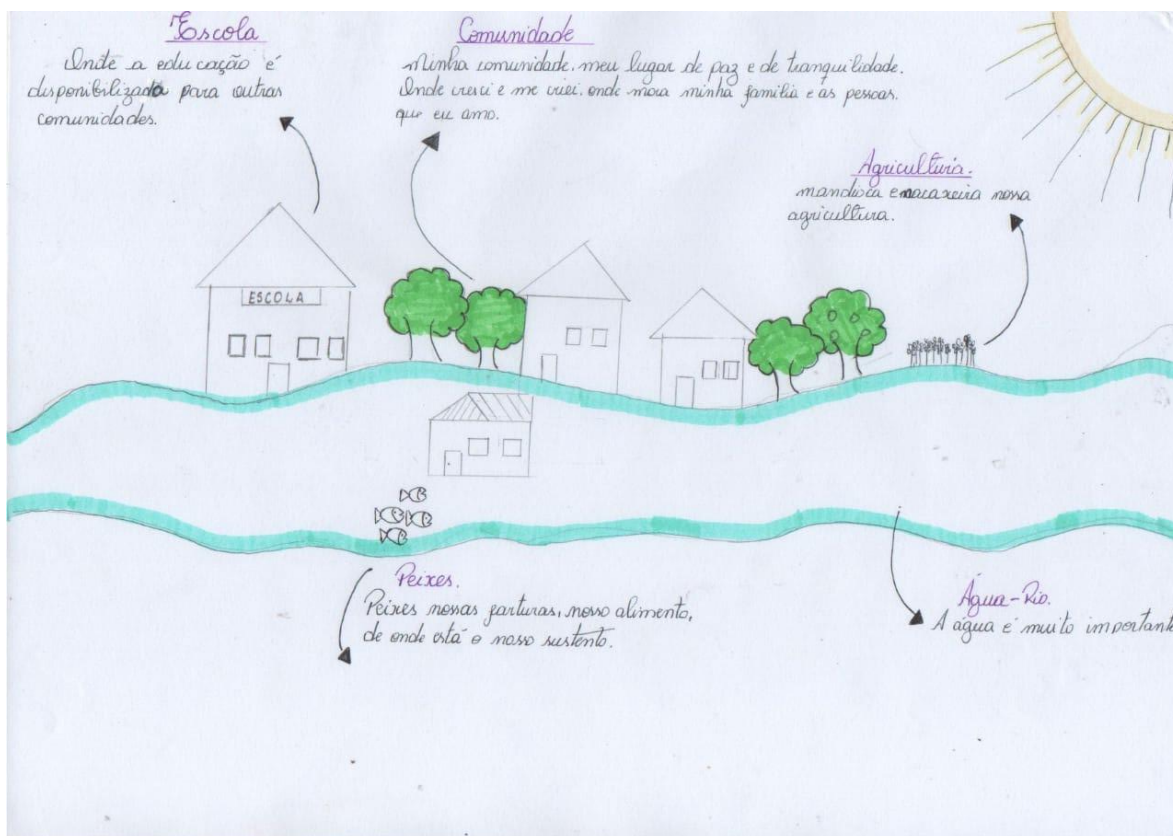 Escola
Onde a educação é
disponibilizada para outras
comunidades.
Comunidade
Minha comunidade. meu lugar de paz e de tranquilidade.
Onde cresci e me criei. onde mora minha família e as pessoas.
que eu amo.
Agricultura.
mandioca e macaxeira nossa
agricultura.
ESCOLA
Peixes.
Peixes nossas farturas, nosso alimento,
de onde está o nosso sustento.
Água-Rio.
A água é muito importante